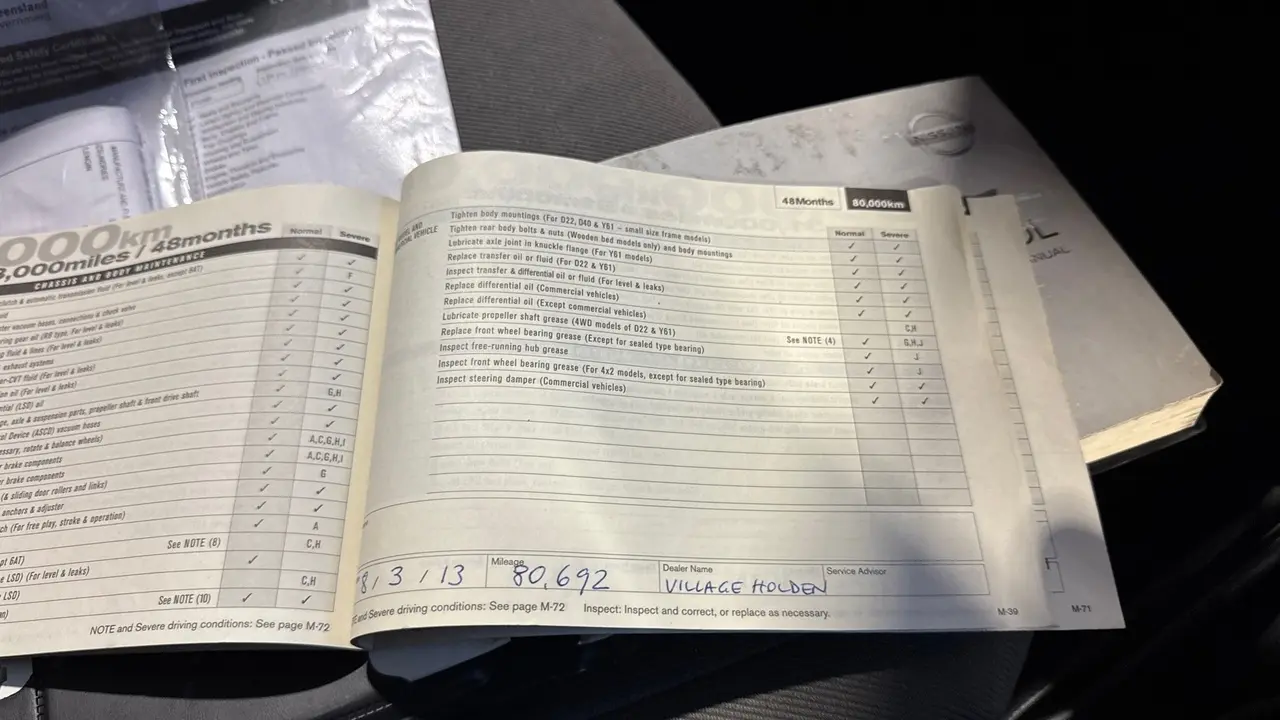 eensland
overnment
ed Safety Certificate
First Inspection - Passed Inspection
NISSAN
000km
8,000miles / 48months
Normal
Severe
CHASSIS AND BODY MAINTENANCE
clutch & automatic transmission fluid (For level & leaks, except 6AT)
✓ ✓
uid
✓ F
ter vacuum hoses, connections & check valve
✓ ✓
ring gear oil (RB type, For level & leaks)
✓ ✓
g fluid & lines (For level & leaks)
✓ ✓
exhaust systems
✓ ✓
er-CVT fluid (For level & leaks)
✓ ✓
on oil (For level & leaks)
✓ ✓
ntial (LSD) oil
✓ G,H
ge, axle & suspension parts, propeller shaft & front drive shaft
✓ ✓
ol Device (ASCD) vacuum hoses
✓ ✓
essary, rotate & balance wheels)
✓ A,C,G,H,I
r brake components
✓ A,C,G,H,I
r brake components
✓ G
(& sliding door rollers and links)
✓ ✓
anchors & adjuster
✓ ✓
ch (For free play, stroke & operation)
✓ A
See NOTE (8)
C,H
pt 6AT)
✓
e LSD) (For level & leaks)
C,H
LSD)
See NOTE (10) ✓ ✓
NOTE and Severe driving conditions: See page M-72
48Months 80,000km
Normal Severe
VEHICLE
Tighten body mountings (For D22, D40 & Y61 – small size frame models) ✓ ✓
Tighten rear body bolts & nuts (Wooden bed models only) and body mountings ✓ ✓
Lubricate axle joint in knuckle flange (For Y61 models) ✓ ✓
Replace transfer oil or fluid (For D22 & Y61) ✓ ✓
Inspect transfer & differential oil or fluid (For level & leaks) ✓ ✓
Replace differential oil (Commercial vehicles) ✓ ✓
Replace differential oil (Except commercial vehicles) C,H
Lubricate propeller shaft grease (4WD models of D22 & Y61) See NOTE (4) ✓ G,H,J
Replace front wheel bearing grease (Except for sealed type bearing) ✓ J
Inspect free-running hub grease ✓ J
Inspect front wheel bearing grease (For 4x2 models, except for sealed type bearing) ✓ ✓
Inspect steering damper (Commercial vehicles) ✓ ✓
8 / 3 / 13
Mileage
80,692
Dealer Name
VILLAGE HOLDEN
Service Advisor
and Severe driving conditions: See page M-72 Inspect: Inspect and correct, or replace as necessary.
M-39
M-71